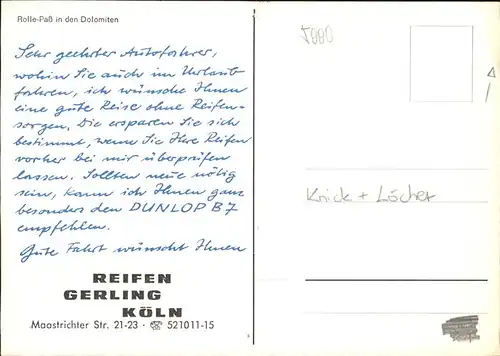 Rolle-Paß in den Dolomiten
Sehr geehrter Autofahrer,
wohin Sie auch im Urlaub
fahren, ich wünsche Ihnen
eine gute Reise ohne Reifen-
sorgen. Die ersparen Sie sich
bestimmt, wenn Sie Ihre Reifen
vorher bei mir überprüfen
lassen. Sollten neue nötig
sein, kann ich Ihnen ganz
besonders den DUNLOP B7
empfehlen.
Gute Fahrt wünscht Ihnen
REIFEN
GERLING
KÖLN
Maastrichter Str. 21-23 · ☎ 521011-15
Knick + Löcher